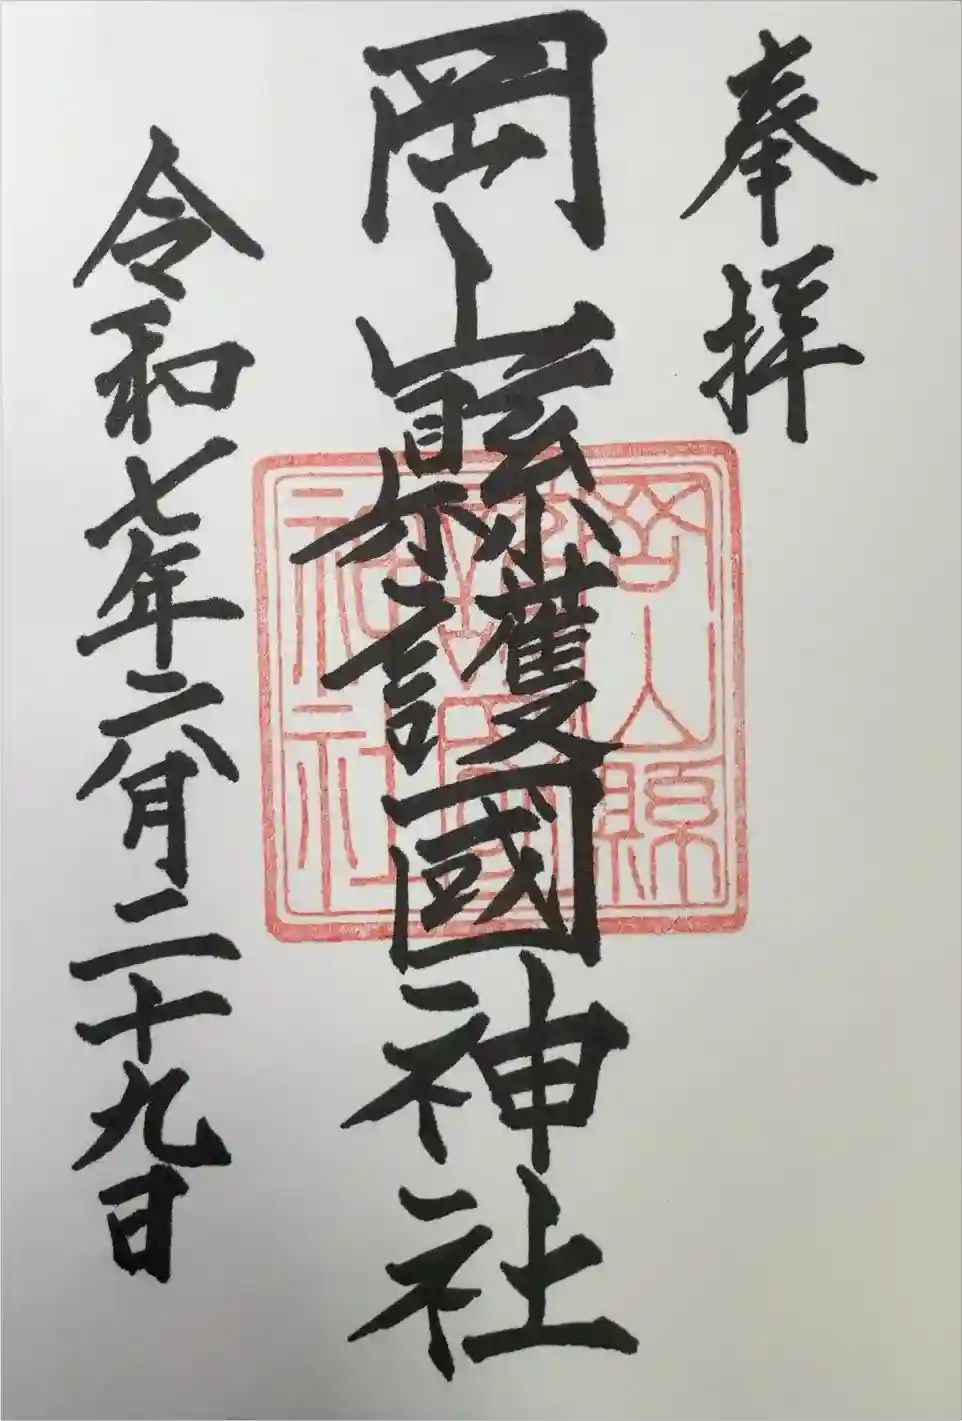 奉拝
岡山縣護國神社
岡山縣
護國
神社
令和七年六月二十九日